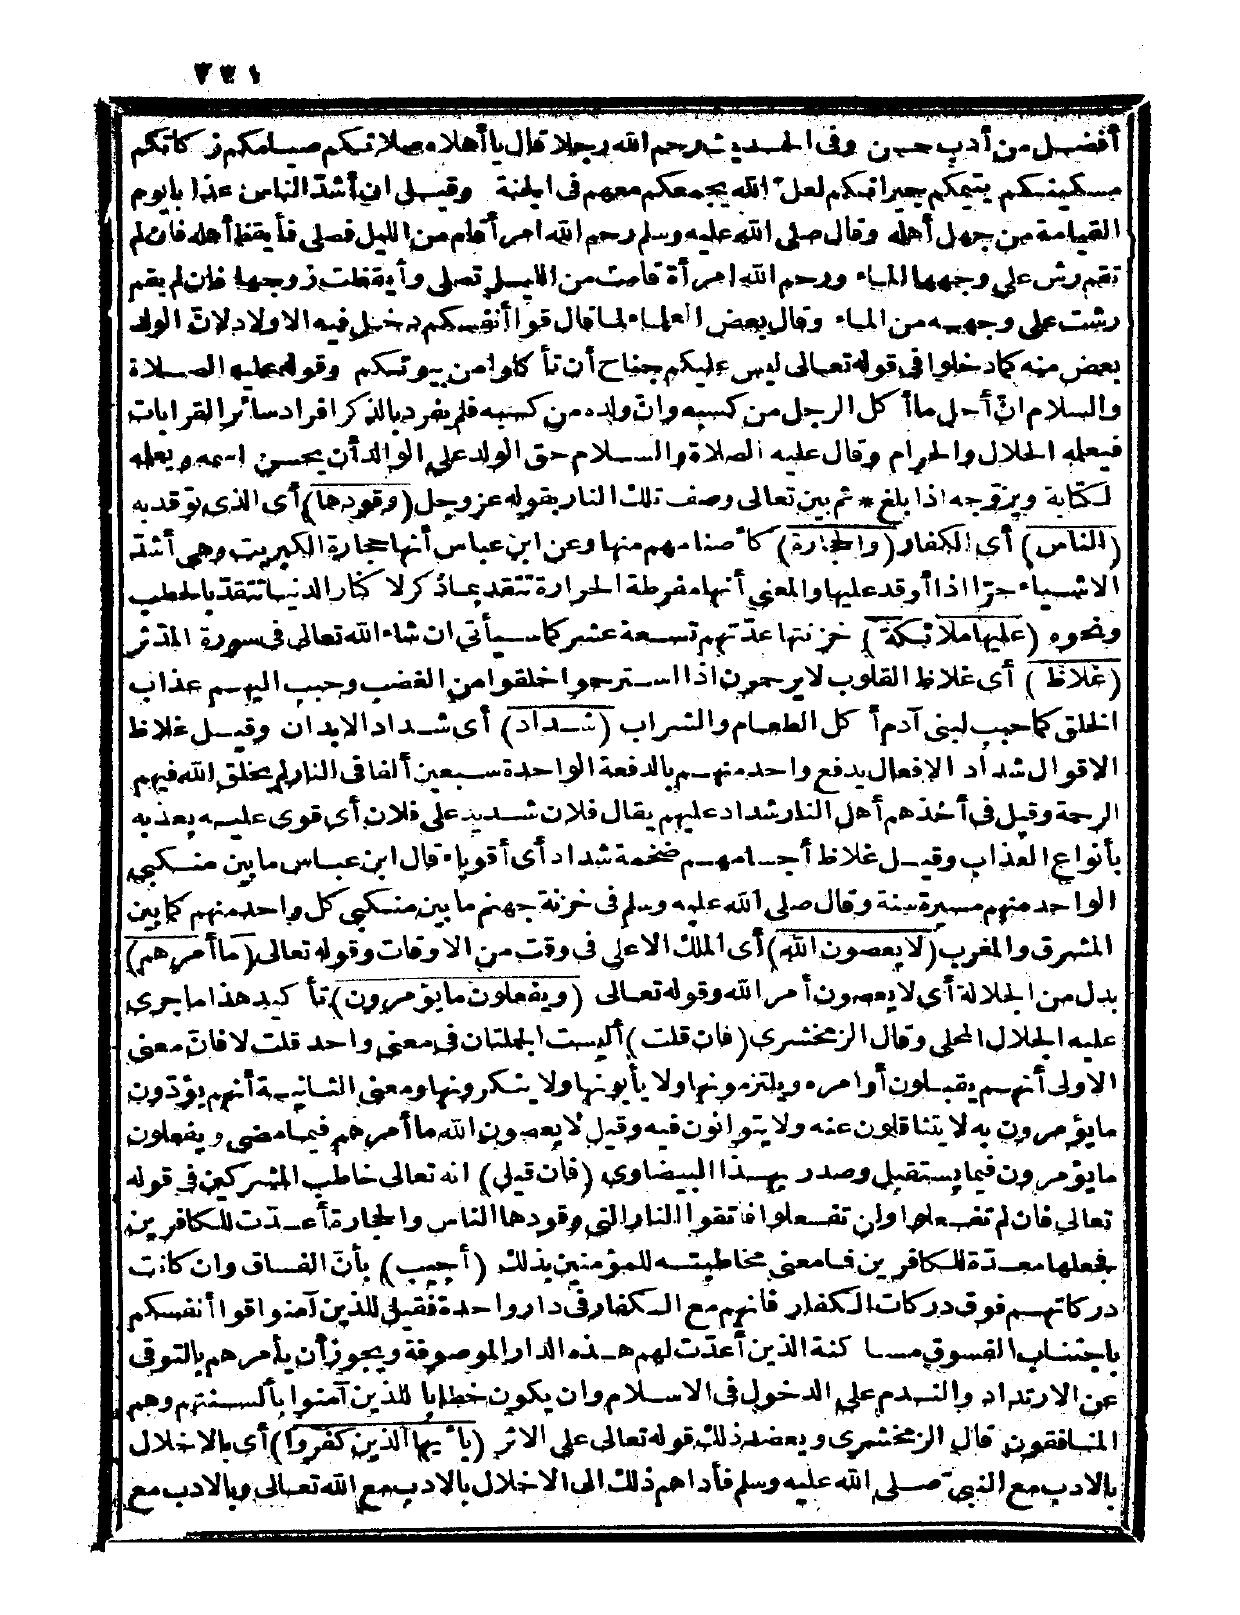 ٣٣١
أفضل من أدب حسن وفى الحديث رحم الله رجلا قال يا أهلاه صلاتكم صيامكم زكاتكم
مسكينكم يتيمكم جيرانكم لعلّ الله يجمعكم معهم فى الجنة وقيل ان أشدّ الناس عذابا يوم
القيامة من جهل أهله وقال صلى الله عليه وسلم رحم الله امرأ قام من الليل فصلى فأيقظ أهله فان لم
تقم رش على وجهها الماء ورحم الله امرأة قامت من الليل تصلى وأيقظت زوجها فان لم يقم
رشت على وجهه من الماء وقال بعض العلماء لما قال قوا أنفسكم دخل فيه الاولاد لانّ الولد
بعض منه كما دخلوا فى قوله تعالى ليس عليكم جناح أن تأكلوا من بيوتكم وقوله عليه الصلاة
والسلام انّ أحل ما أكل الرجل من كسبه وانّ ولده من كسبه فلم يفرد بالذكر افراد سائر القرابات
فيعلمه الحلال والحرام وقال عليه الصلاة والسلام حق الولد على الوالد أن يحسن اسمه ويعلمه
لكتابة ويزوّجه اذا بلغ * ثم بين تعالى وصف تلك النار بقوله عز وجل (وقودها) أى الذى توقد به
(الناس) أى الكفار (والحجارة) كأصنامهم منها وعن ابن عباس أنها حجارة الكبريت وهى أشدّ
الاشياء حرّا اذا أوقد عليها والمعنى أنها مفرطة الحرارة تتقد بماذكر لا كنار الدنيا تتقد بالحطب
ونحوه (عليها ملائكة) خزنتها عدّتهم تسعة عشر كما سيأتى ان شاء الله تعالى فى سورة المدّثر
(غلاظ) أى غلاظ القلوب لا يرحمون اذا استرحموا خلقوا من الغضب وحبب اليهم عذاب
الخلق كما حبب لبنى آدم أكل الطعام والشراب (شداد) أى شداد الابدان وقيل غلاظ
الاقوال شداد الافعال يدفع واحد منهم بالدفعة الواحدة سبعين ألفا فى النار لم يخلق الله فيهم
الرحمة وقيل فى أخذهم أهل النار شداد عليهم يقال فلان شديد على فلان أى قوى عليه يعذبه
بأنواع العذاب وقيل غلاظ أجسامهم ضخمة شداد أى أقوياء قال ابن عباس ما بين منكبى
الواحد منهم مسيرة سنة وقال صلى الله عليه وسلم فى خزنة جهنم ما بين منكبى كل واحد منهم كما بين
المشرق والمغرب (لا يعصون الله) أى الملك الاعلى فى وقت من الاوقات وقوله تعالى (ما أمرهم)
بدل من الجلالة أى لا يعصون أمر الله وقوله تعالى (ويفعلون ما يؤمرون) تأكيد هذا ما جرى
عليه الجلال المحلى وقال الزمخشرى (فان قلت) أليست الجملتان فى معنى واحد قلت لا فانّ معنى
الاولى أنهم يقبلون أوامره ويلتزمونها ولا يأبونها ولا ينكرونها ومعنى الثانية أنهم يؤدّون
ما يؤمرون به لا يتثاقلون عنه ولا يتوانون فيه وقيل لا يعصون الله ما أمرهم فيما مضى ويفعلون
ما يؤمرون فيما يستقبل وصدر بهذا البيضاوى (فان قيل) انه تعالى خاطب المشركين فى قوله
تعالى فان لم تفعلوا ولن تفعلوا فاتقوا النار التى وقودها الناس والحجارة أعدّت للكافرين
فجعلها معدّة للكافرين فما معنى مخاطبته للمؤمنين بذلك (أجيب) بأنّ الفساق وان كانت
دركاتهم فوق دركات الكفار فانهم مع الكفار فى دار واحدة فقيل للذين آمنوا قوا أنفسكم
باجتناب الفسوق مساكنة الذين أعدّت لهم هذه الدار الموصوفة ويجوز أن يأمرهم بالتوقى
عن الارتداد والندم على الدخول فى الاسلام وان يكون خطابا للذين آمنوا بألسنتهم وهم
المنافقون قال الزمخشرى ويعضد ذلك قوله تعالى على الاثر (يا أيها الذين كفروا) أى بالاخلال
بالادب مع النبىّ صلى الله عليه وسلم فأداهم ذلك الى الاخلال بالادب مع الله تعالى وبالادب مع